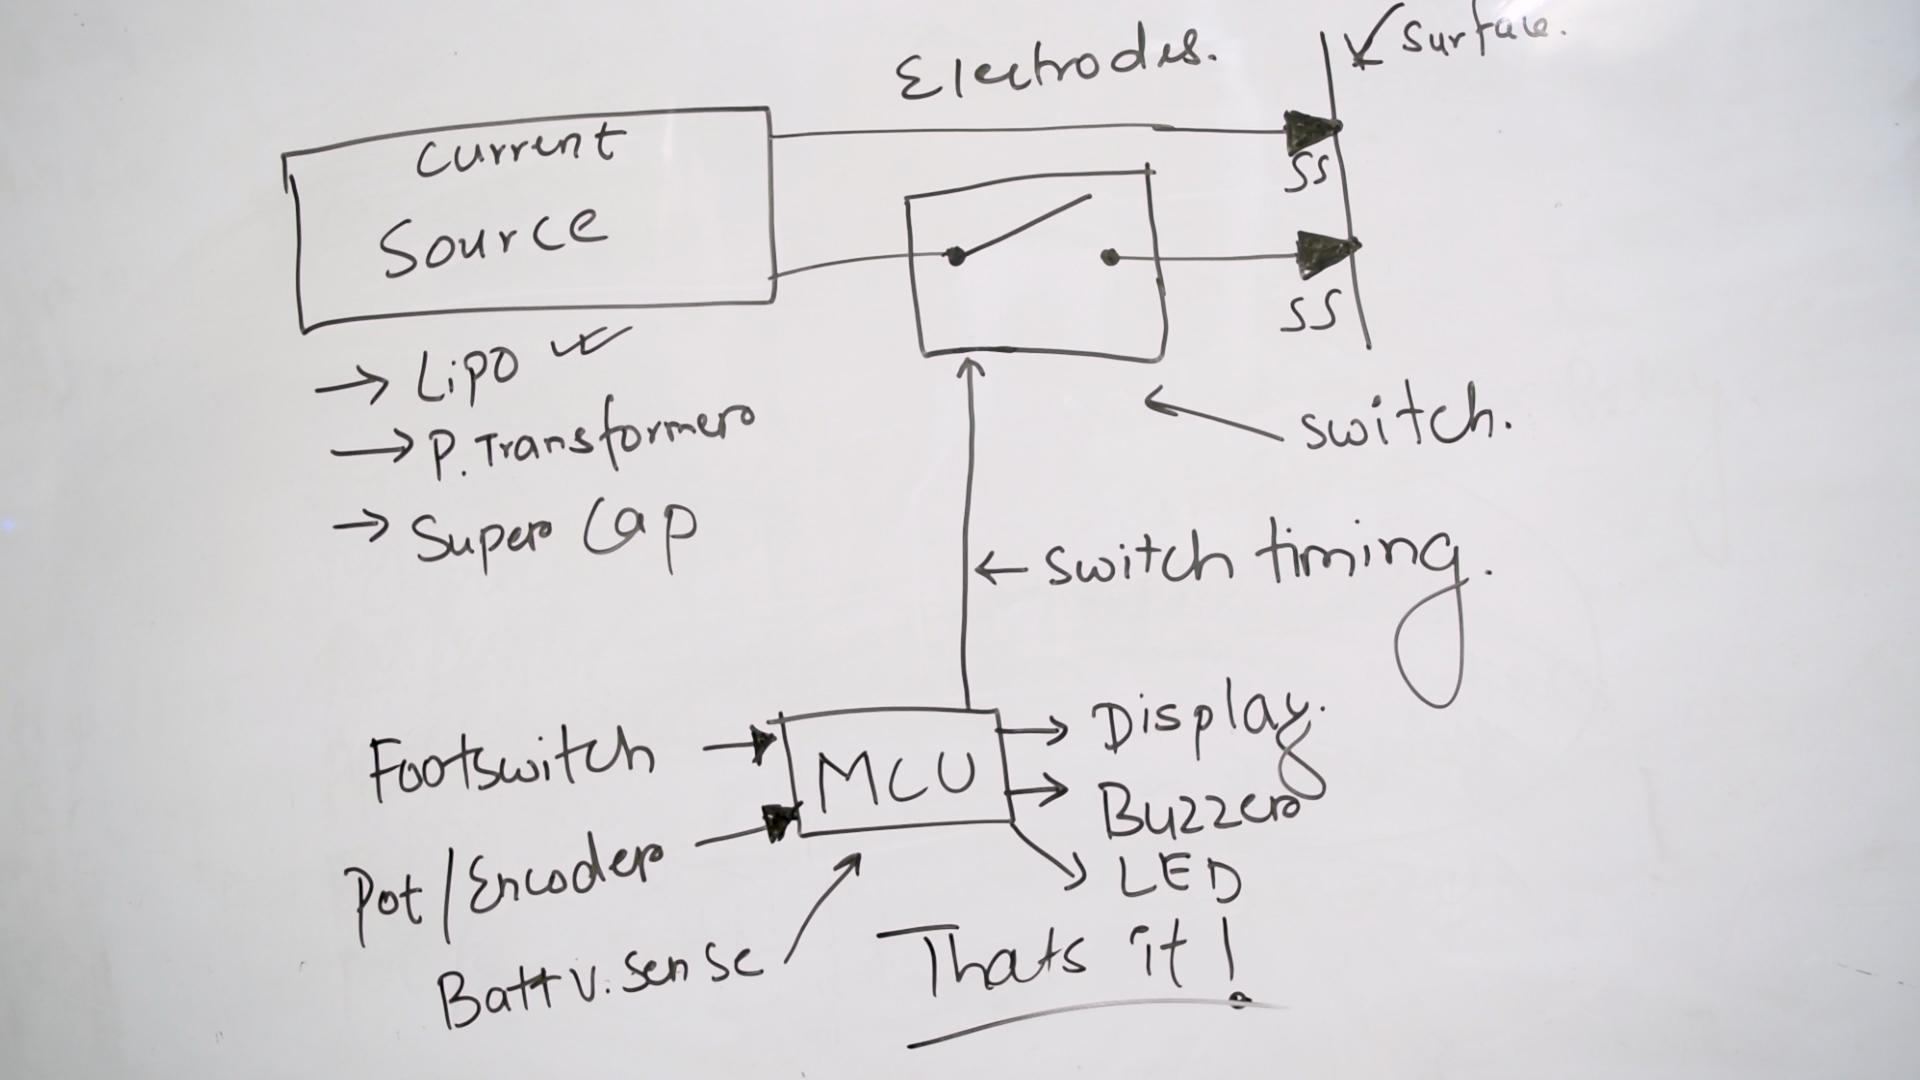 Electrodes.
Surface.
Current
Source
SS
SS
→ LiPO
→ P. Transformer
→ Super Cap
switch.
← switch timing.
Footswitch
MCU
Display.
Buzzer
LED
Pot/Encoder
Batt v. sense
Thats it!